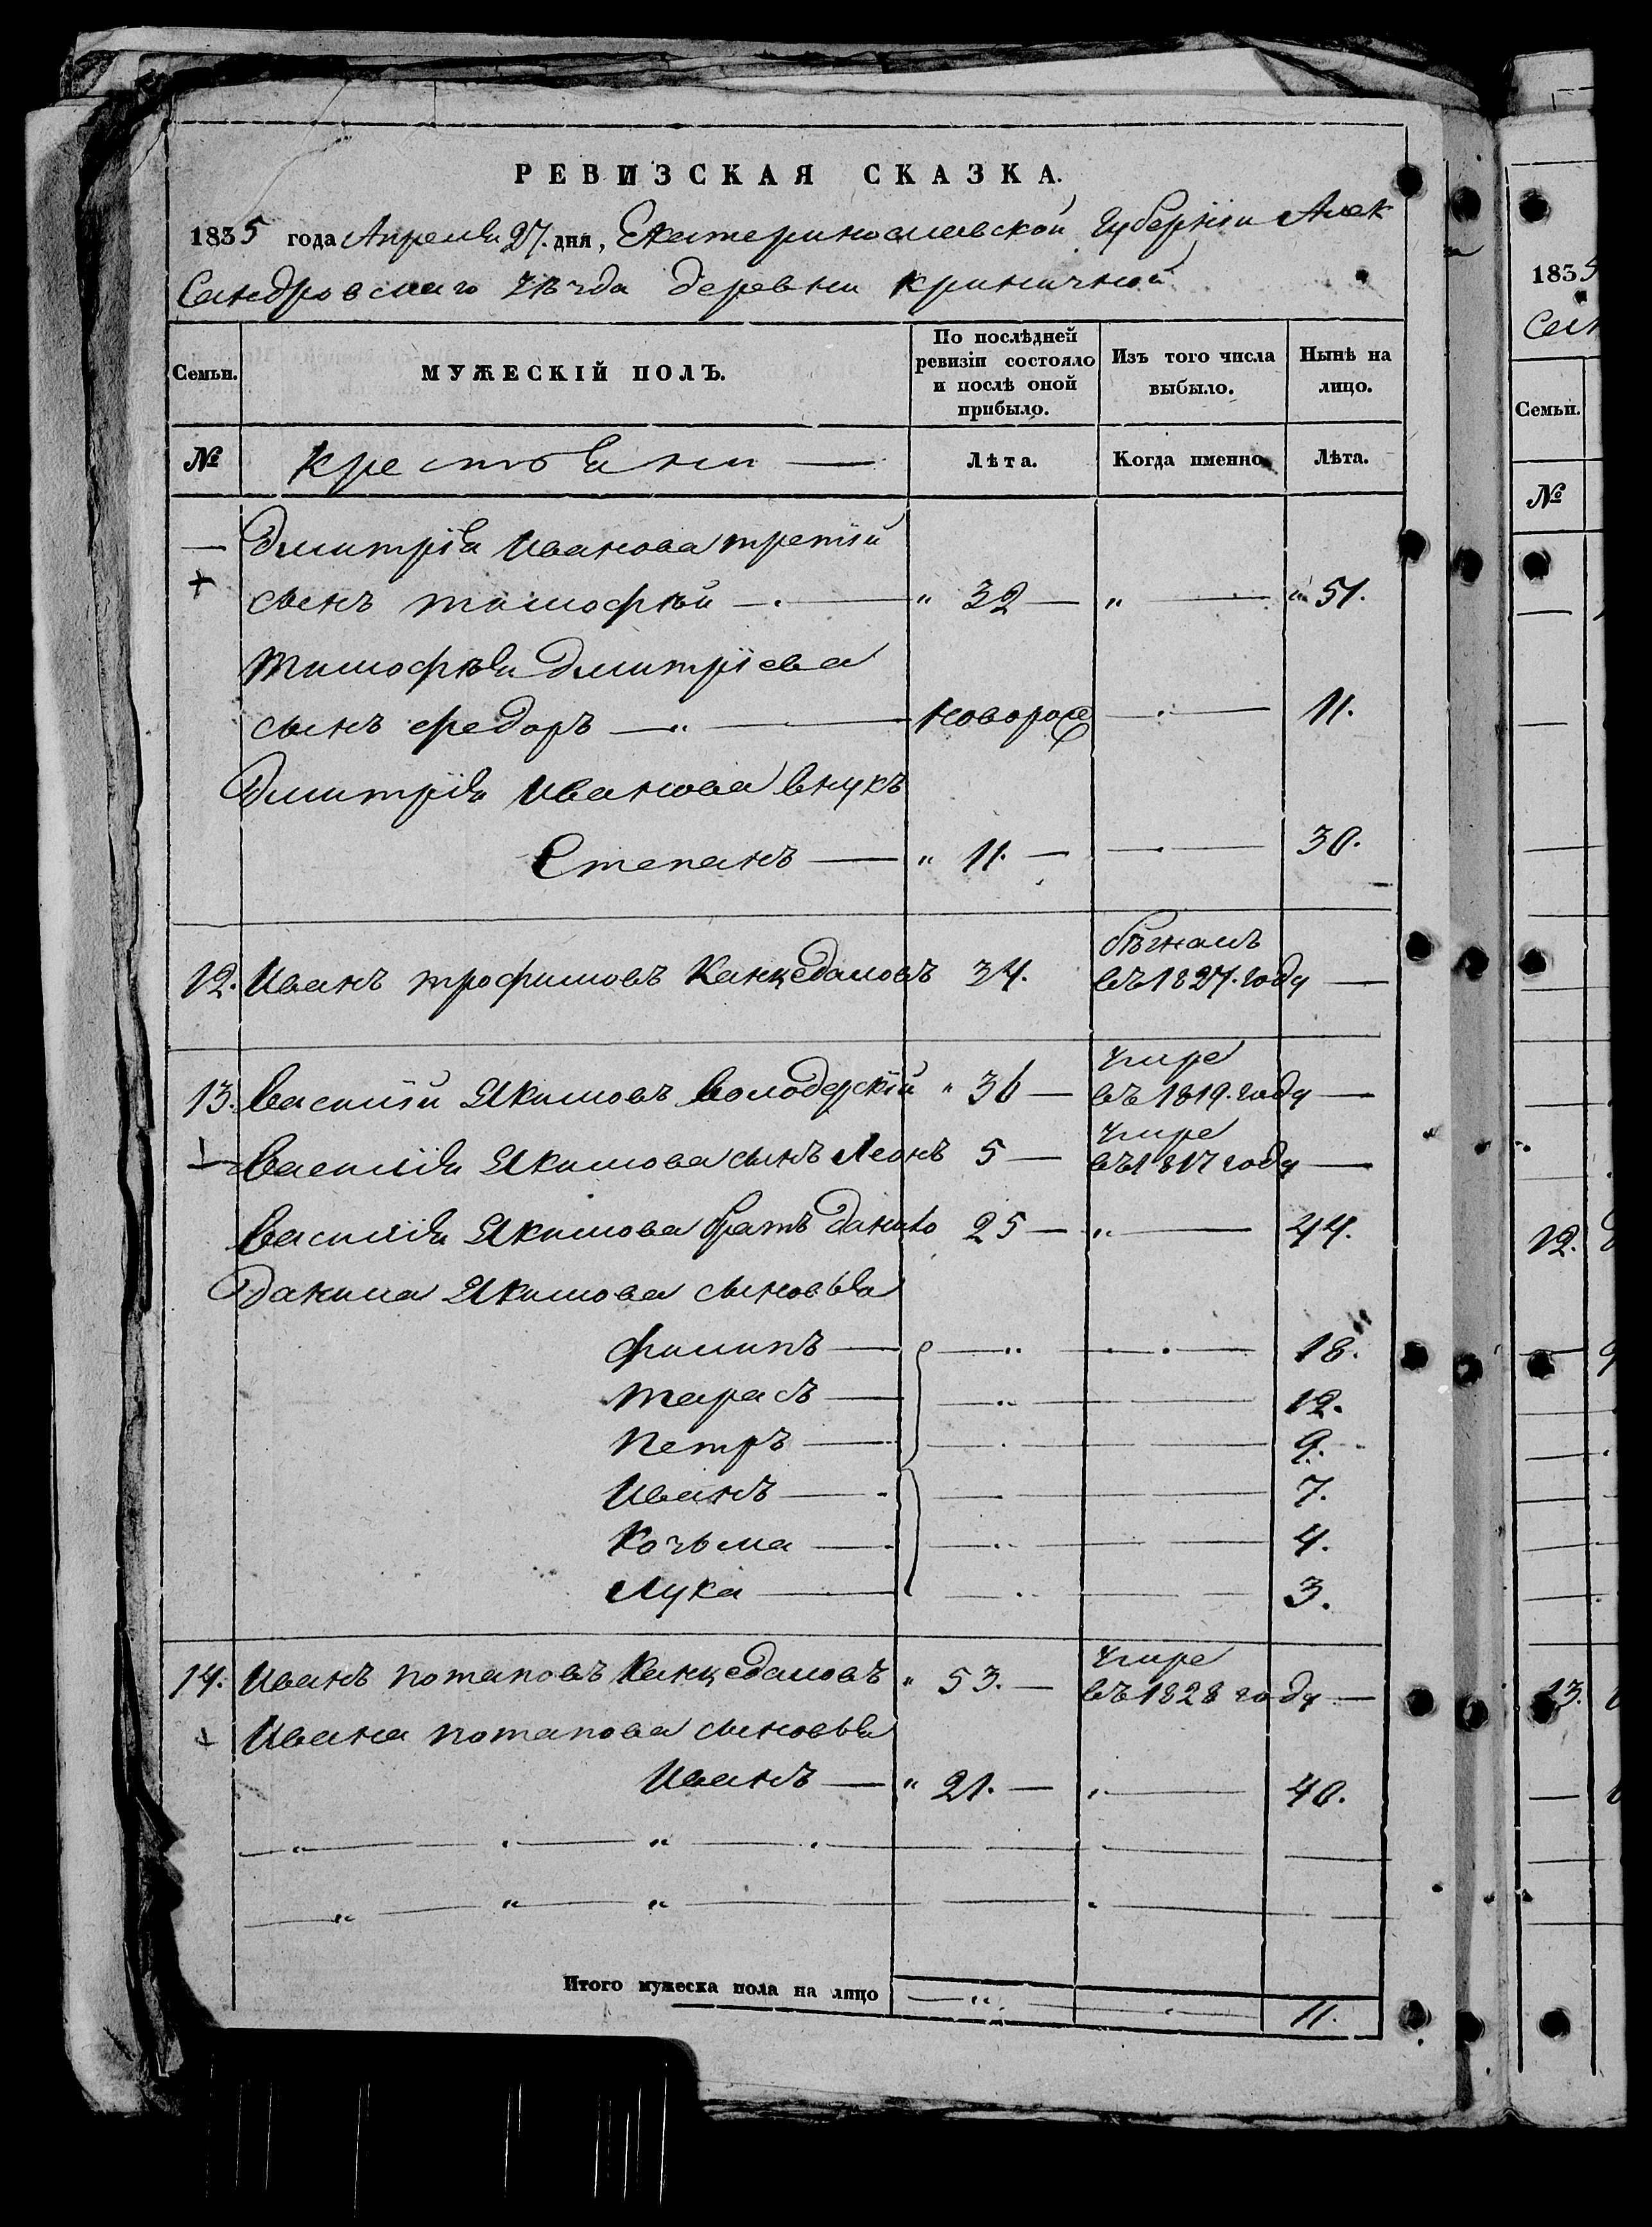 РЕВИЗСКАЯ СКАЗКА.
1835 года Апреля 27. дня, Екатеринославской Губерніи Алек
сандровскаго уѣзда деревни криничной
Семьи. МУЖЕСКІЙ ПОЛЪ. По послѣдней ревизіи состояло и послѣ оной прибыло. Изъ того числа выбыло. Нынѣ на лицо.
№ крестьяни — Лѣта. Когда именно. Лѣта.
— Дмитрія Иванова третій
+ сынъ тимофѣй — " 32 — " — " 51.
тимофѣя Дмитріева
сынъ федоръ — новорож — 11.
Дмитрія Иванова внукъ
Степанъ — " 11. — — 30.
12. Иванъ трофимовъ Канцедаловъ 34. бѣжалъ въ 1827. году —
13. василій Якимовъ володерскій " 36 — умре въ 1819. году —
+ василія Якимова сынъ Леонъ 5 — умре въ 1817 году —
василія Якимова братъ данило 25 — " — 44.
данила Якимова сыновья
филипъ — 18.
тарасъ — 12.
петръ — 9.
Иванъ — 7.
Козьма — 4.
Лука — 3.
14. Иванъ потаповъ Канцедаловъ " 53. — умре въ 1828 году —
+ Ивана потапова сыновья
Иванъ — " 21. — " — 40.
Итого мужеска пола на лицо 11.
1835
сан
Семьи.
№
12.
13.